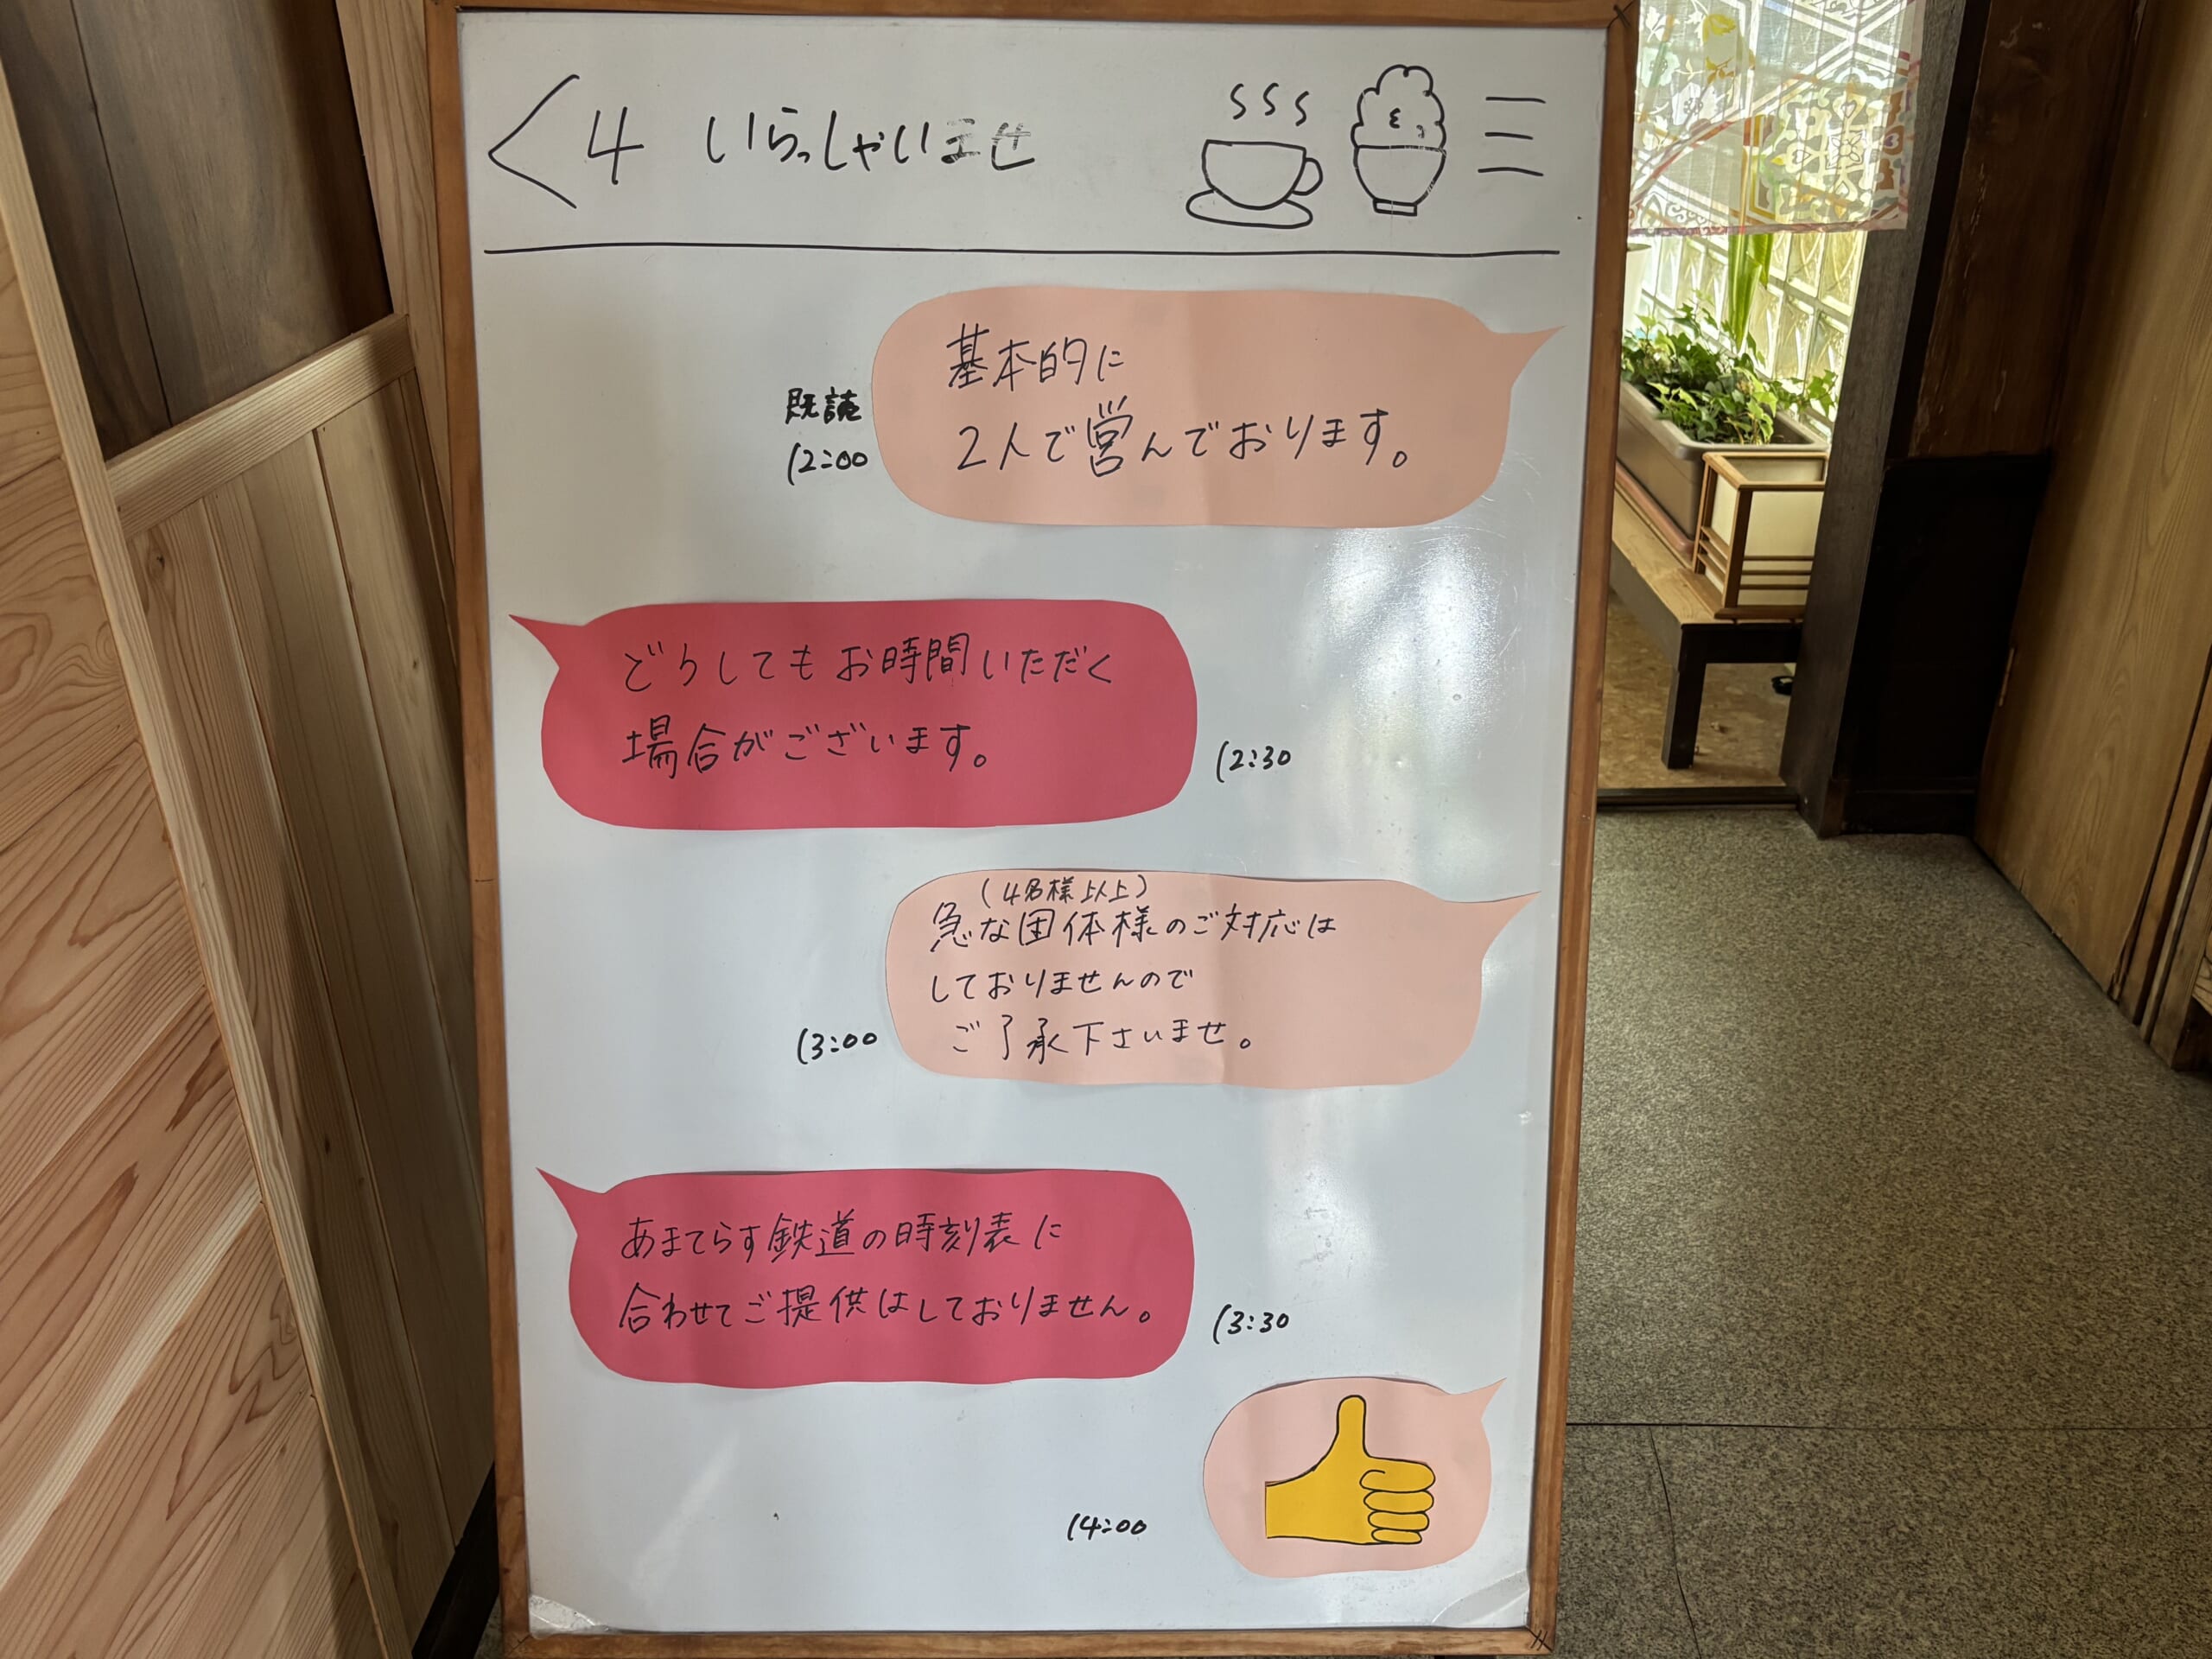 ＜4 いらっしゃいませ
基本的に
2人で営んでおります。
既読
12:00
どうしてもお時間いただく
場合がございます。
12:30
(4名様以上)
急な団体様のご対応は
しておりませんので
ご了承下さいませ。
13:00
あまてらす鉄道の時刻表に
合わせてご提供はしておりません。
13:30
14:00